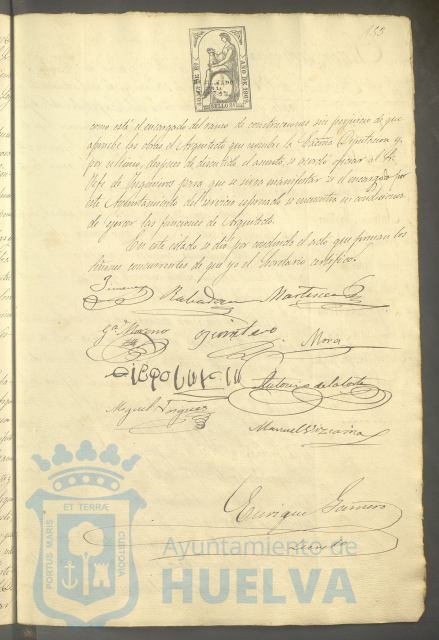 155
AÑO DE 186
SELLO
como está el encargado del ramo de construcciones sin perjuicio de que
apruebe las obras el Arquitecto que nombre la Excma Diputacion y,
por ultimo, despues de discutido el asunto, se acordó oficiar al
Jefe de Ingenieros para que se sirva manifestar si el encargado por
este Ayuntamiento del servicio espresado se encuentra en condiciones
de ejercer las funciones de Arquitecto.
En este estado se dió por concluido el acto que firman los
Señores concurrentes de que yo el Secretario certifico.
Jimenez
Rabadan
Martinez
Gª Moreno
Quintero
Mora
Diego Garcia
Antonio de la Corte
Miguel
Manuel Vizcaino
Enrique Gamero
PORTUS MARIS ET TERRÆ CUSTODIA
Ayuntamiento de
HUELVA